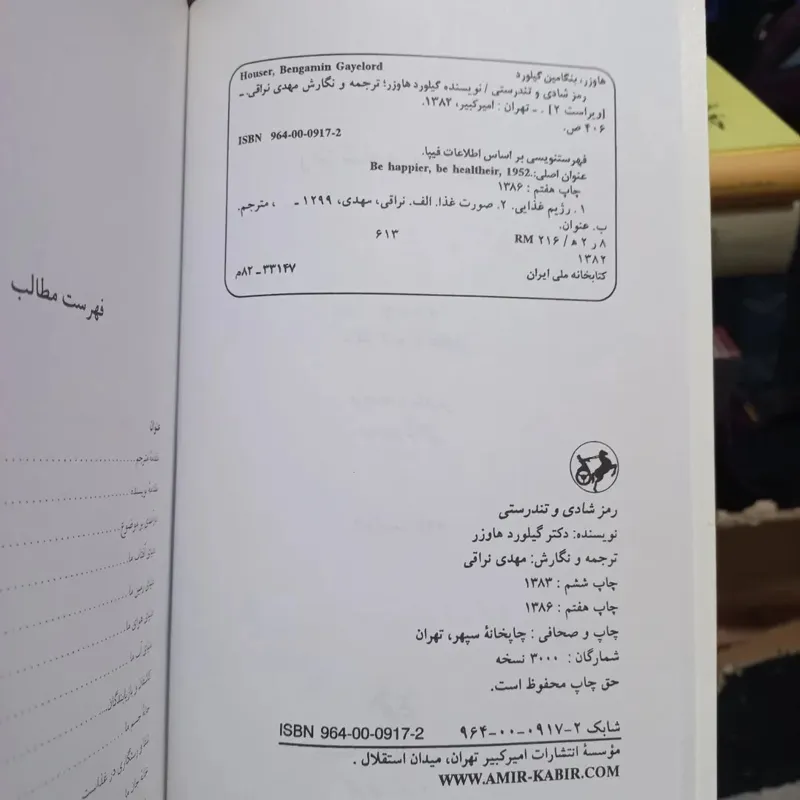 Houser, Bengamin Gayelord
هاوزر، بنگامین گیلورد
رمز شادی و تندرستی / نویسنده گیلورد هاوزر؛ ترجمه و نگارش مهدی نراقی. ـ
[ویراست ۲] . ـ تهران : امیرکبیر، ۱۳۸۲.
۴۰۶ ص.
ISBN 964-00-0917-2
فهرستنویسی بر اساس اطلاعات فیپا.
عنوان اصلی: Be happier, be healtheir, 1952.
چاپ هفتم : ۱۳۸۶
۱. رژیم غذایی. ۲. صورت غذا. الف. نراقی، مهدی، ۱۲۹۹ ـ ، مترجم.
ب. عنوان.
۸ ر ۲ ه / RM ۲۱۶ ۶۱۳
۱۳۸۲
کتابخانه ملی ایران ۳۳۱۴۷ـ۸۲م
رمز شادی و تندرستی
نویسنده: دکتر گیلورد هاوزر
ترجمه و نگارش: مهدی نراقی
چاپ ششم : ۱۳۸۳
چاپ هفتم : ۱۳۸۶
چاپ و صحافی : چاپخانهٔ سپهر، تهران
شمارگان : ۳۰۰۰ نسخه
حق چاپ محفوظ است.
شابک ۲-۰۹۱۷-۰۰-۹۶۴ ISBN 964-00-0917-2
مؤسسهٔ انتشارات امیرکبیر تهران، میدان استقلال .
WWW.AMIR-KABIR.COM
فهرست مطالب
عنوان
مقدمهٔ مترجم
مقدمهٔ نویسنده